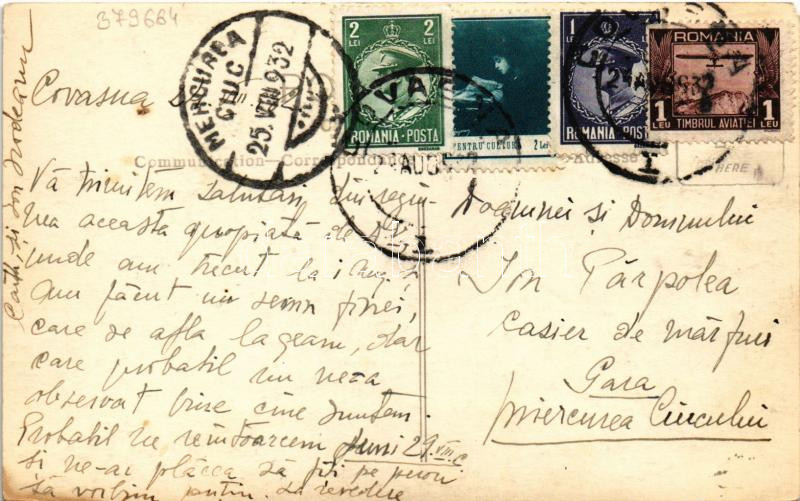 379664
MERCUREA
CIUC
25.VIII.932
2 2
LEI LEI
ROMANIA-POSTA
PENTRU CULTURA 2 Lei
1
LEI
ROMANIA-POSTA
ROMANIA
1 1
LEU LEU
TIMBRUL AVIAȚIEI
AUG 932
Covasna
Communication—Correspondance
Adresse
HERE
Vă trimitem salutări din regiu-
nea aceasta apropiată de
unde am trecut la 1 Aug.
Am făcut un semn finei,
care se afla la geam, dar
care probabil nu ne-a
observat bine cine suntem.
Probabil ne reîntoarcem Luni 29.VIII.c
și ne-ar plăcea să fiți pe peron
să vorbim puțin. La revedere
și Ion
Doamnei și Domnului
Ion Pârpolea
casier de mărfuri
Gara
Miercurea Ciucului